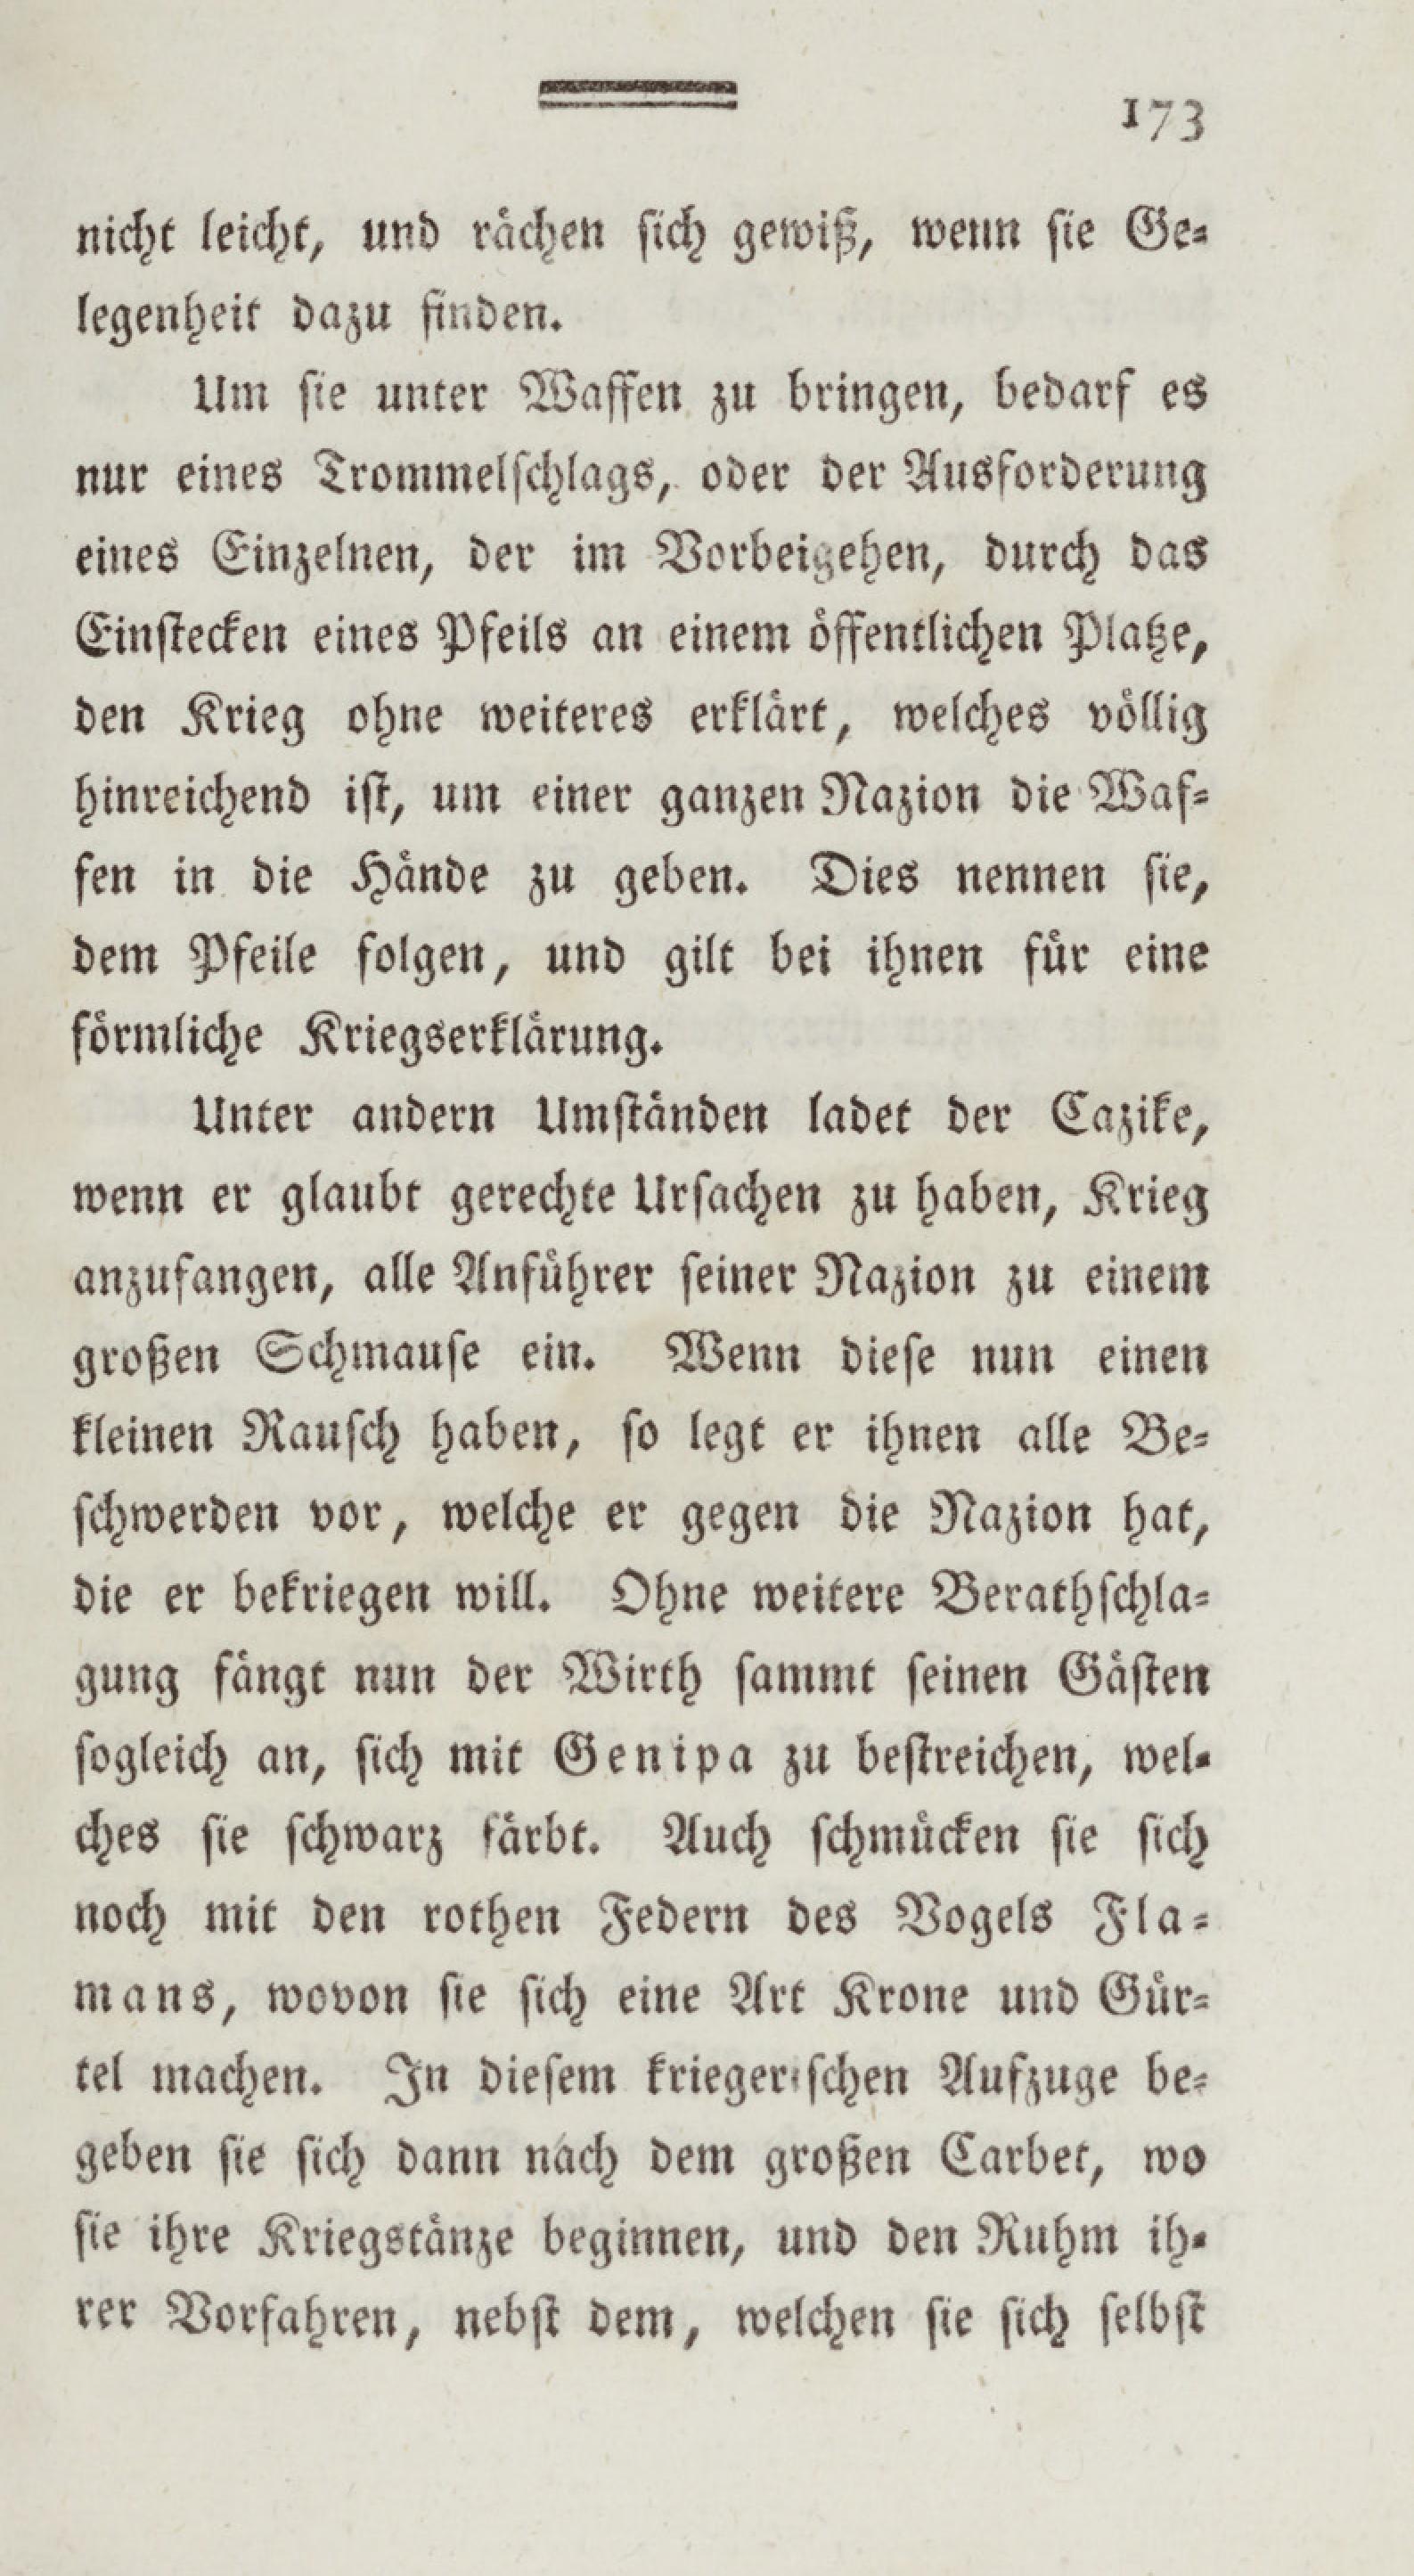 173
nicht leicht, und rächen sich gewiß, wenn sie Ge-
legenheit dazu finden.
Um sie unter Waffen zu bringen, bedarf es
nur eines Trommelschlags, oder der Ausforderung
eines Einzelnen, der im Vorbeigehen, durch das
Einstecken eines Pfeils an einem öffentlichen Platze,
den Krieg ohne weiteres erklärt, welches völlig
hinreichend ist, um einer ganzen Nazion die Waf-
fen in die Hände zu geben. Dies nennen sie,
dem Pfeile folgen, und gilt bei ihnen für eine
förmliche Kriegserklärung.
Unter andern Umständen ladet der Cazike,
wenn er glaubt gerechte Ursachen zu haben, Krieg
anzufangen, alle Anführer seiner Nazion zu einem
großen Schmause ein. Wenn diese nun einen
kleinen Rausch haben, so legt er ihnen alle Be-
schwerden vor, welche er gegen die Nazion hat,
die er bekriegen will. Ohne weitere Berathschla-
gung fängt nun der Wirth sammt seinen Gästen
sogleich an, sich mit Genipa zu bestreichen, wel-
ches sie schwarz färbt. Auch schmücken sie sich
noch mit den rothen Federn des Vogels Fla-
mans, wovon sie sich eine Art Krone und Gür-
tel machen. In diesem kriegerischen Aufzuge be-
geben sie sich dann nach dem großen Carbet, wo
sie ihre Kriegstänze beginnen, und den Ruhm ih-
rer Vorfahren, nebst dem, welchen sie sich selbst